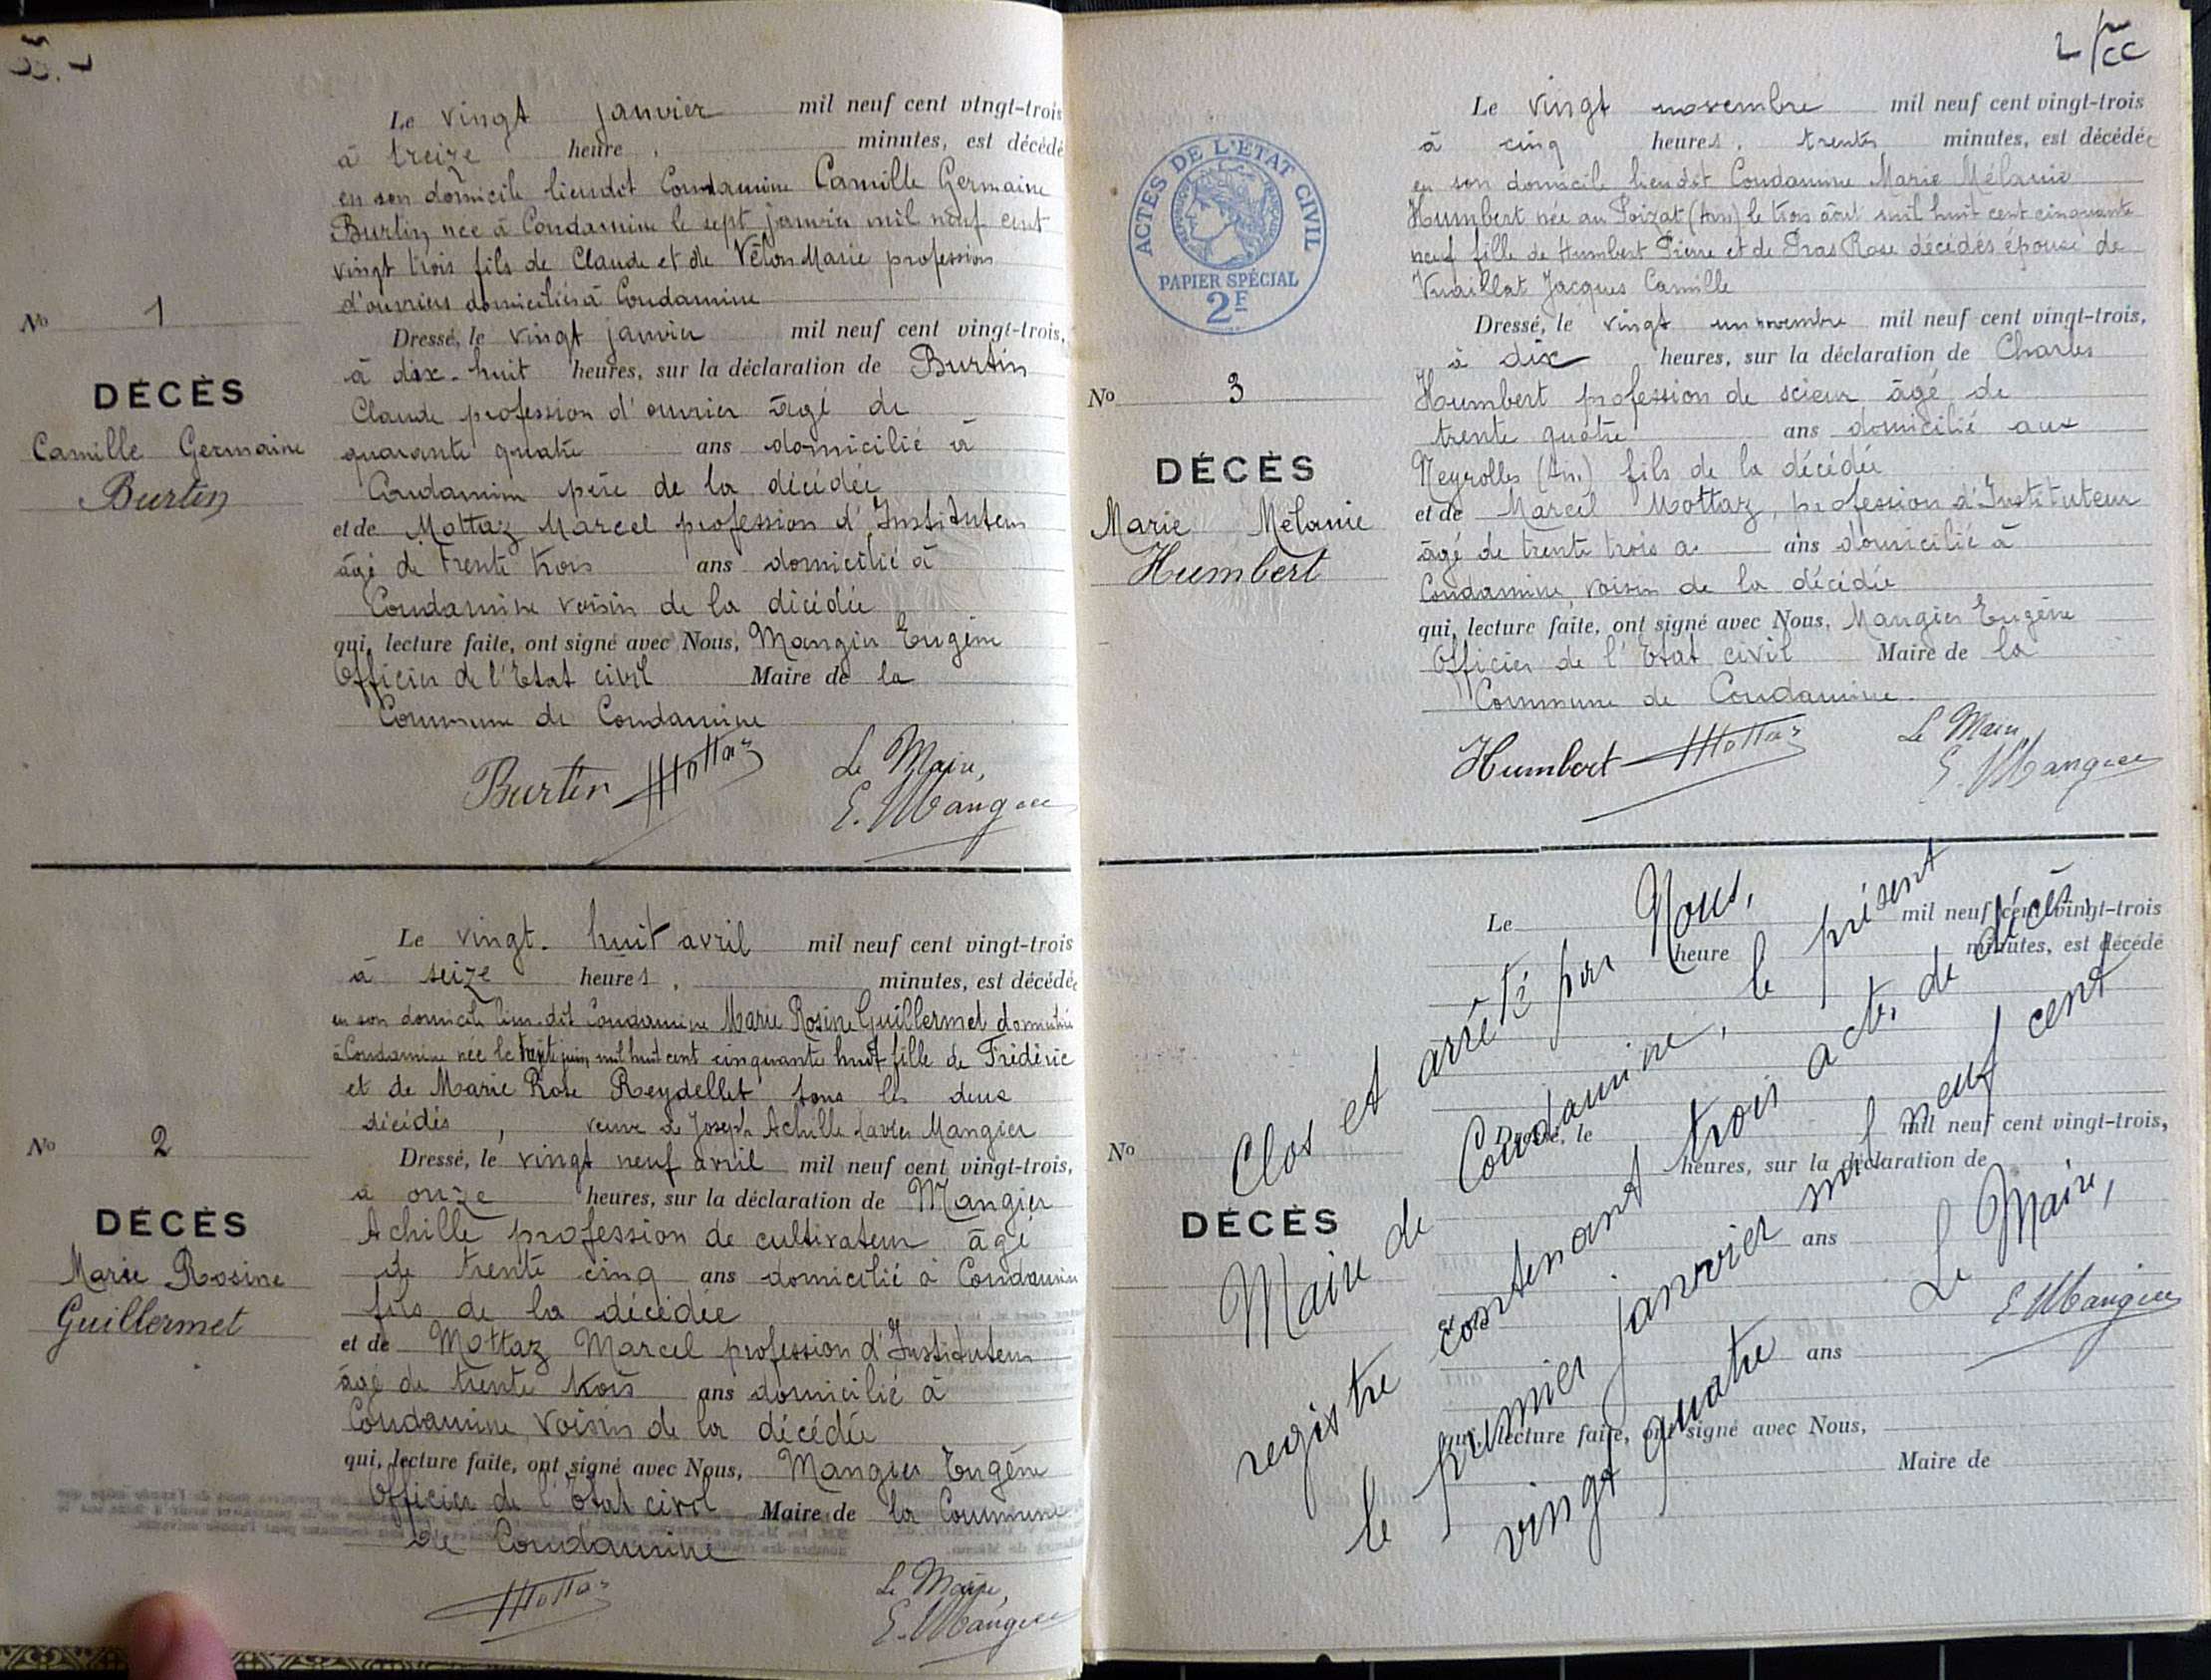 Le vingt janvier mil neuf cent vingt-trois
à treize heure, minutes, est décédé
en son domicile lieudit Condamine Camille Germaine
Burtin, née à Condamine le sept janvier mil neuf cent
vingt trois fils de Claude et de Vêlon Marie profession
d'ouvriers domiciliés à Condamine
No 1
DÉCÈS
Camille Germaine
Burtin
Dressé, le vingt janvier mil neuf cent vingt-trois,
à dix-huit heures, sur la déclaration de Burtin
Claude profession d'ouvrier âgé de
quarante quatre ans domicilié à
Condamine père de la décédée
et de Mottaz Marcel profession d'Instituteur
âgé de trente trois ans domicilié à
Condamine voisin de la décédée
qui, lecture faite, ont signé avec Nous, Mangier Eugène
Officier de l'Etat civil Maire de la
Commune de Condamine
Burtin Mottaz Le Maire,
E. Mangier
Le vingt-huit avril mil neuf cent vingt-trois
à seize heures, minutes, est décédée
en son domicile lieu-dit Condamine Marie Rosine Guillermet domiciliée
à Condamine née le juin mil huit cent cinquante huit fille de Frédéric
et de Marie Rose Reydellet tous les deux
décédés, veuve de Joseph Achille Xavier Mangier
No 2
DÉCÈS
Marie Rosine
Guillermet
Dressé, le vingt neuf avril mil neuf cent vingt-trois,
à onze heures, sur la déclaration de Mangier
Achille profession de cultivateur âgé
de trente cinq ans domicilié à Condamine
fils de la décédée
et de Mottaz Marcel profession d'Instituteur
âgé de trente trois ans domicilié à
Condamine, voisin de la décédée
qui, lecture faite, ont signé avec Nous, Mangier Eugène
Officier de l'Etat civil Maire de la Commune
de Condamine
Mottaz Le Maire,
E. Mangier
2
ACTES DE L'ÉTAT CIVIL
PAPIER SPÉCIAL
2F
Le vingt novembre mil neuf cent vingt-trois
à cinq heures, trente minutes, est décédée
en son domicile lieudit Condamine Marie Mélanie
Humbert née au Poizat (Ain) le trois août mil huit cent cinquante
neuf fille de Humbert Pierre et de Pras Rose décédés épouse de
Vuaillat Jacques Camille
No 3
DÉCÈS
Marie Mélanie
Humbert
Dressé, le vingt un novembre mil neuf cent vingt-trois,
à dix heures, sur la déclaration de Charles
Humbert profession de scieur âgé de
trente quatre ans domicilié aux
Neyrolles (Ain) fils de la décédée
et de Marcel Mottaz, profession d'Instituteur
âgé de trente trois a. ans domicilié à
Condamine, voisin de la décédée
qui, lecture faite, ont signé avec Nous, Mangier Eugène
Officier de l'Etat civil Maire de la
Commune de Condamine.
Humbert Mottaz Le Maire
E. Mangier
Le mil neuf cent vingt-trois
heure minutes, est décédé
No
DÉCÈS
Dressé, le mil neuf cent vingt-trois,
heures, sur la déclaration de
ans
et de
ans
qui, lecture faite, ont signé avec Nous,
Maire de
Clos et arrêté par Nous,
Maire de Condamine, le présent
registre contenant trois actes de décès,
le premier janvier mil neuf cent
vingt quatre
Le Maire,
E. Mangier